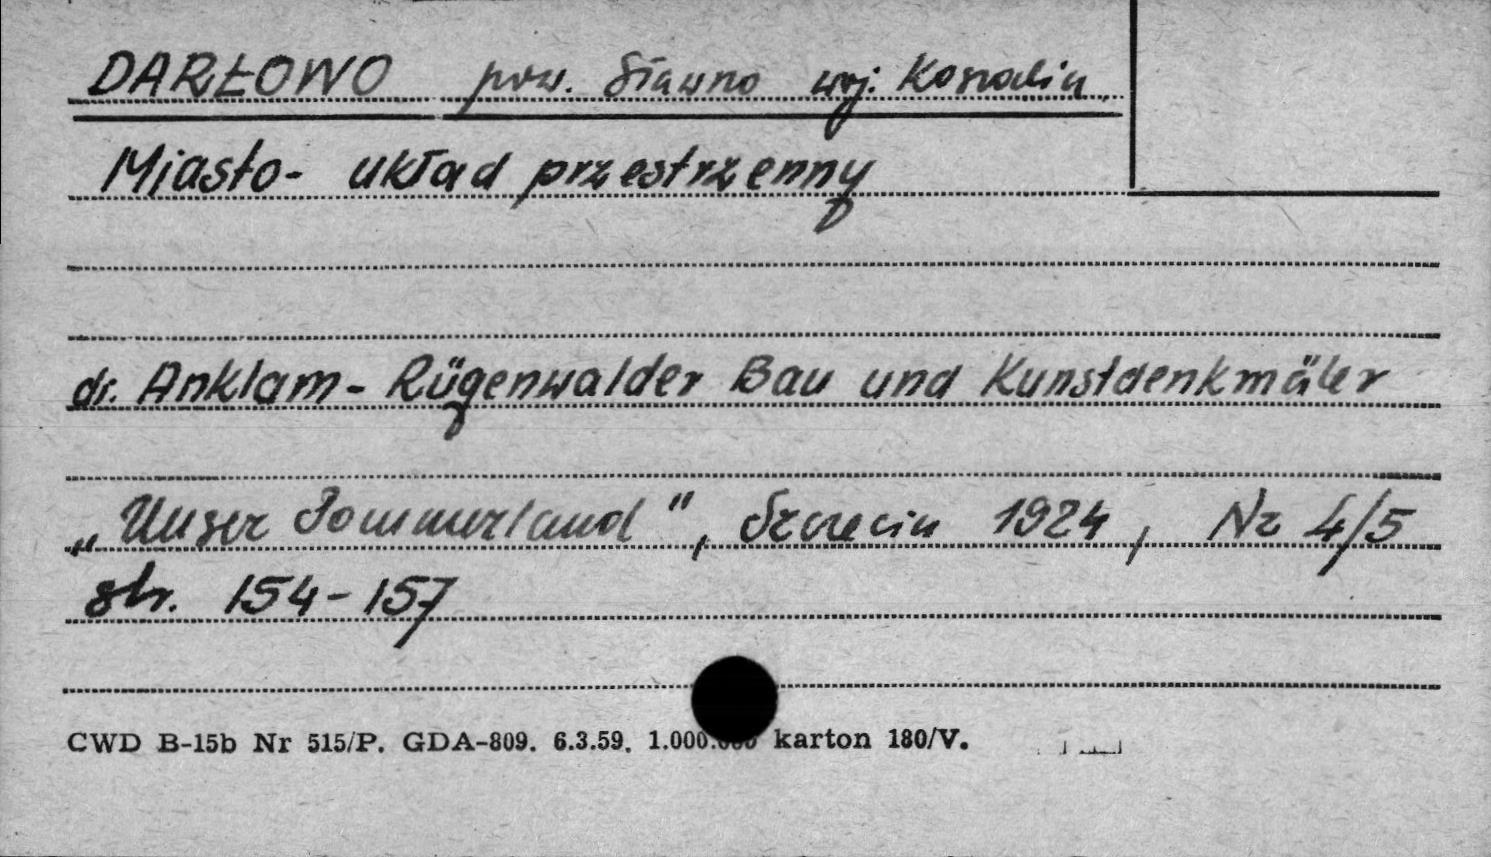 DARŁOWO pow. Sławno woj. Koszalin
Miasto- układ przestrzenny
dr. Anklam - Rügenwalder Bau und Kunstdenkmäler
„Unser Pommerland", Szczecin 1924, Nr 4/5
str. 154-157
CWD B-15b Nr 515/P. GDA-809. 6.3.59. 1.000.000 karton 180/V.